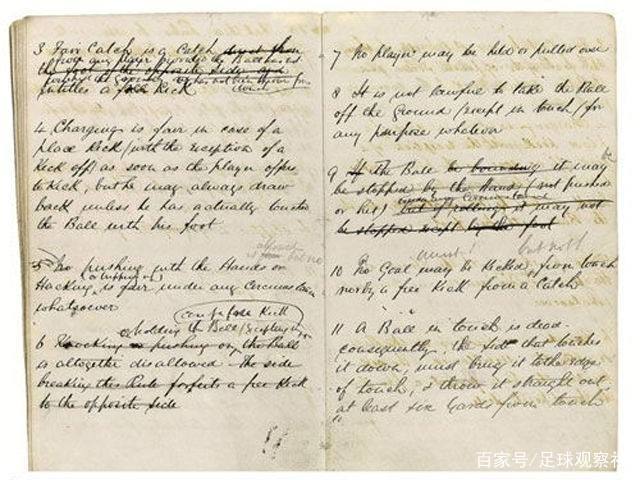 3 Fair Catch is a Catch direct from
from any player provided the Ball has not
the foot of the opposite side and
touched the ground has not been thrown from
touch
entitles a free Kick
4 Charging is fair in case of a
place Kick (with the exception of a
Kick off) as soon as the player offers
to Kick, but he may always draw
back unless he has actually touched
the Ball with his foot
5 No pushing with the Hands or
Hacking, or tripping up is fair under any Circumstances
whatsoever
Kick
holding the Ball
6 Knocking or pushing on the Ball
is altogether disallowed The side
breaking this Rule forfeits a free Kick
to the opposite side
7 No player may be held or pulled over
8 It is not lawful to take the Ball
off the Ground (except in touch) for
any purpose whatever
be
9 If the Ball be bounding it may
be stopped by the Hand (not pushed
or hit) but if rolling it may not
be stopped except by the foot
must! but not
10 No Goal may be Kicked from touch
nor by a free Kick from a Catch
11 A Ball in touch is dead
consequently the side that touches
it down, must bring it to the edge
of touch, & throw it straight out,
at least six yards from touch
百家号/足球观察社